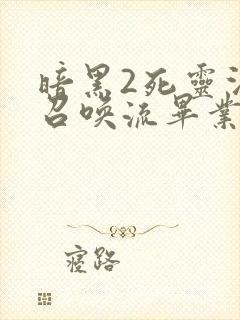 暗黑2死靈
召喚流畢業
寢路